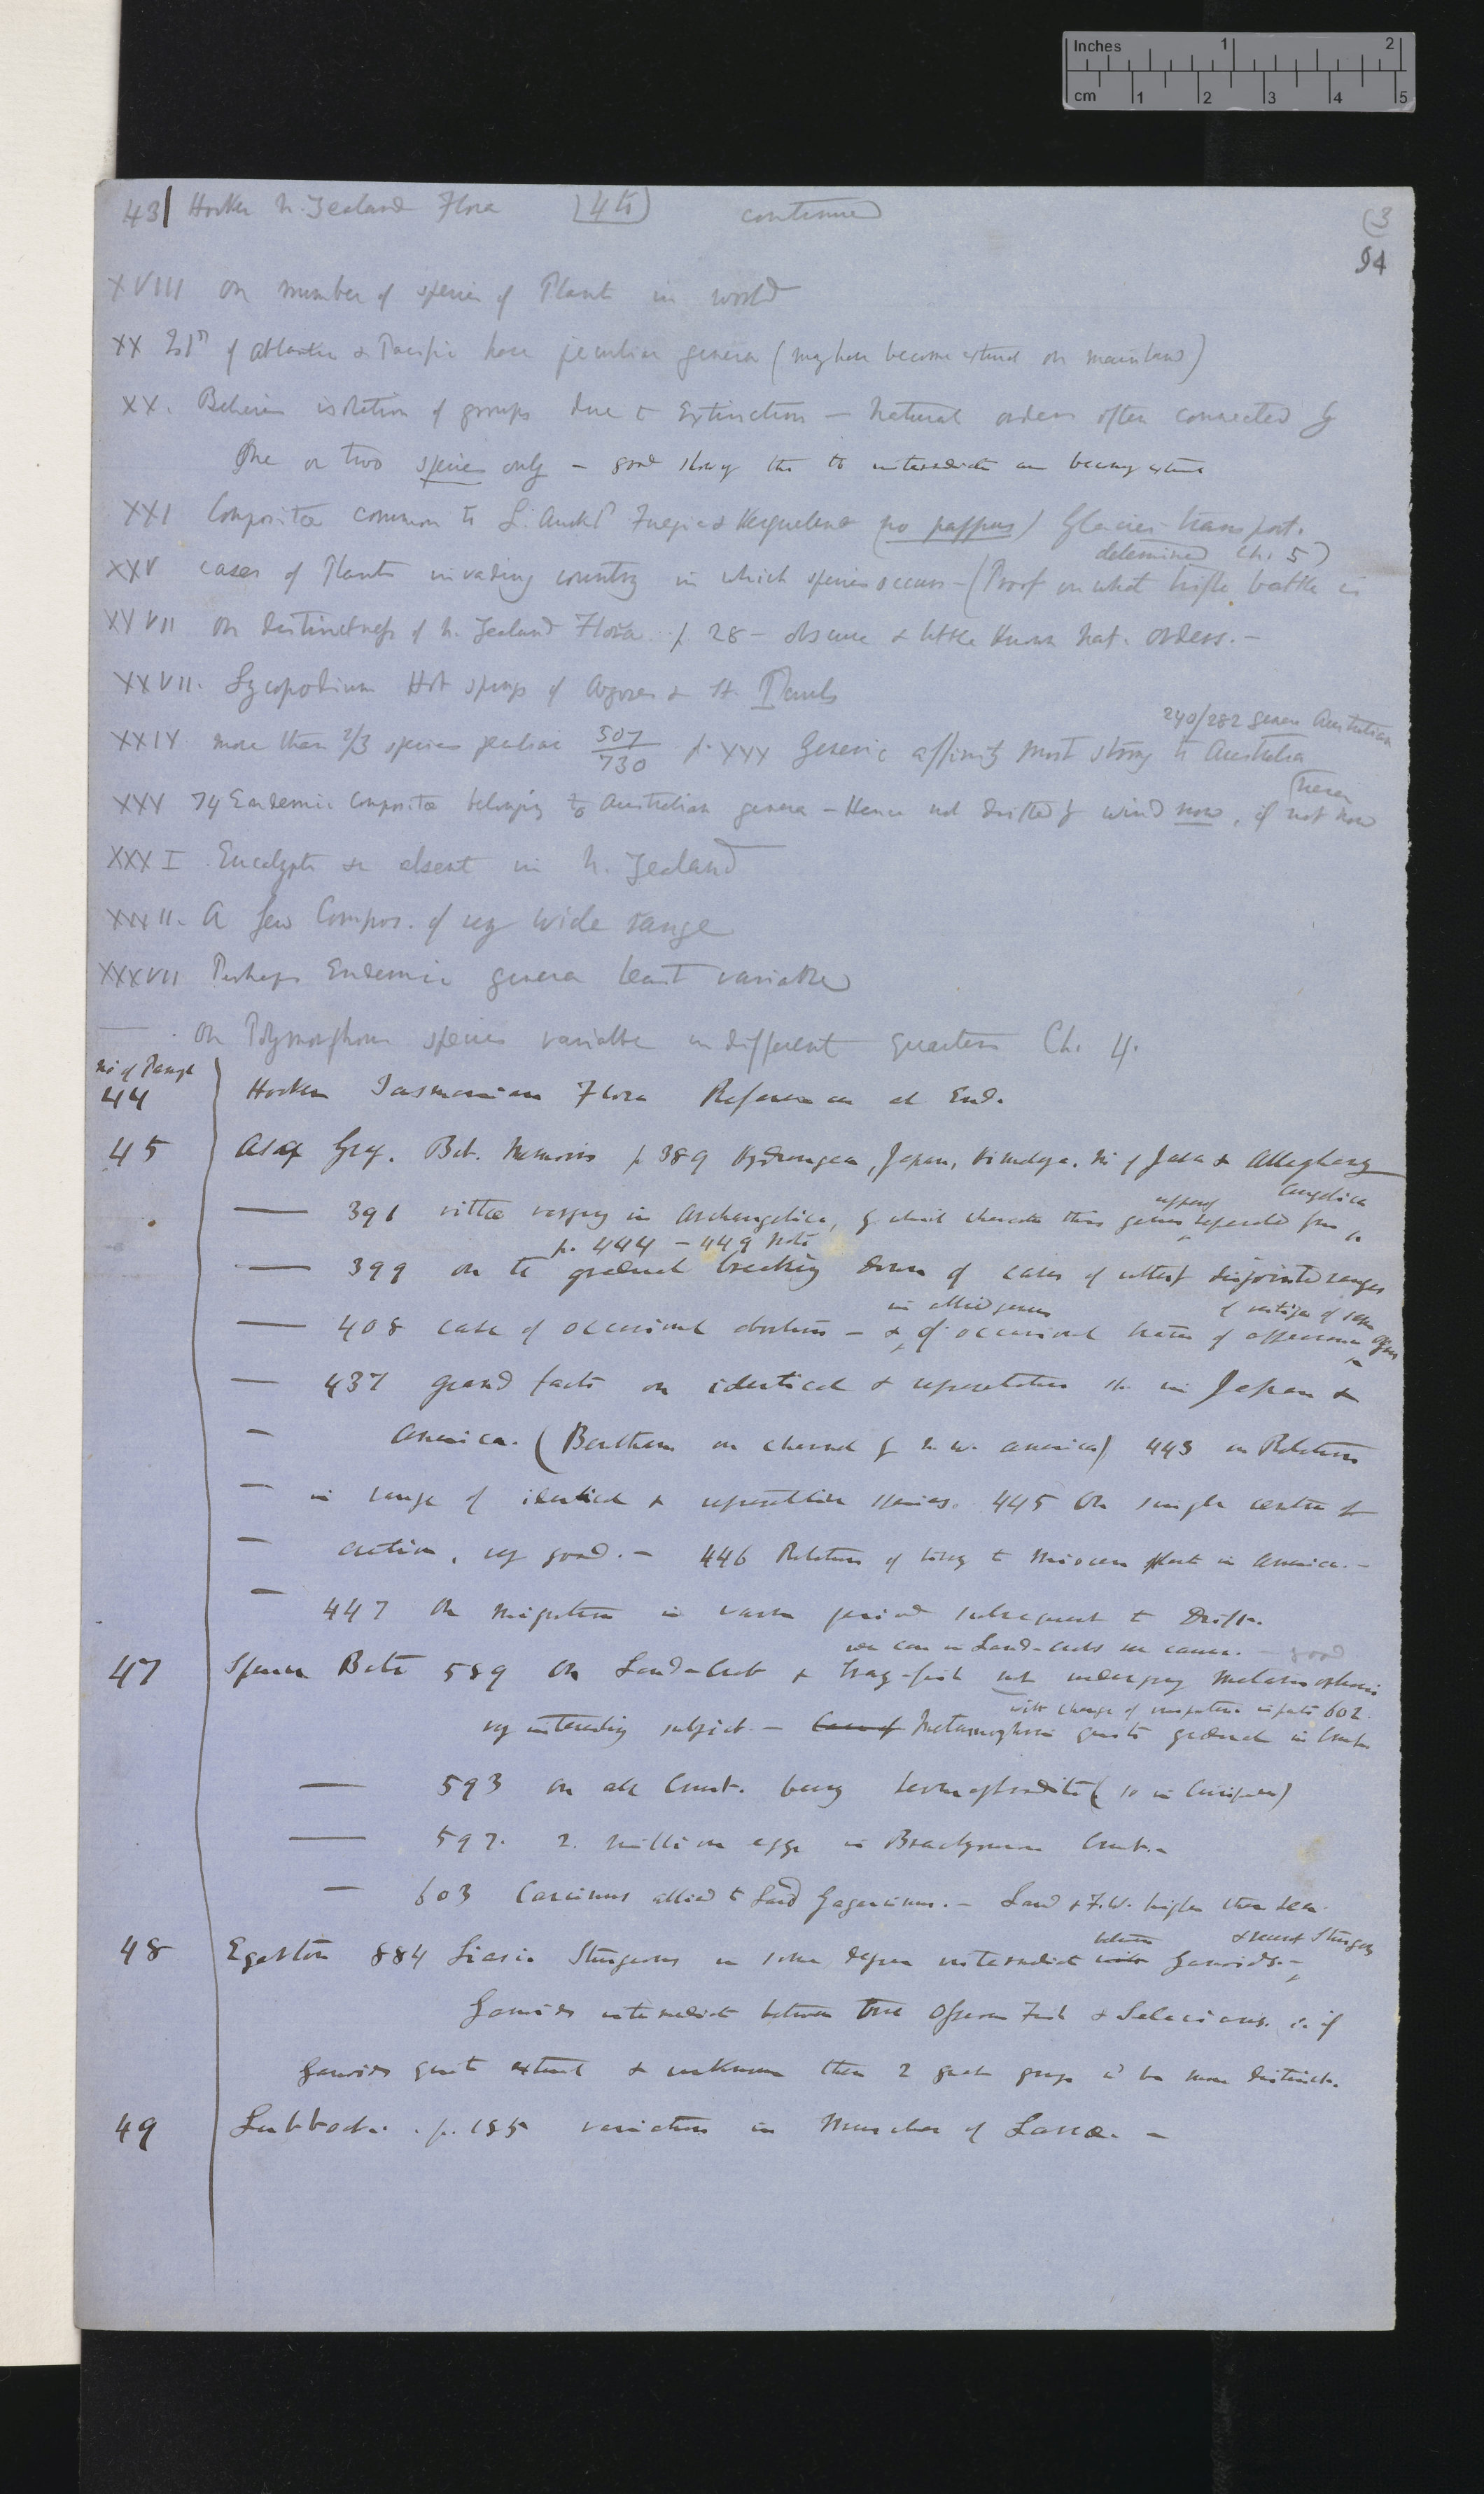 Inches 1 2
cm 1 2 3 4 5
43| Hooker N. Zealand Flora (4to) continued (3
94
XVIII On number of species of Plants in world
XX Isld of Atlantic & Pacific have peculiar genera (may have become extinct on mainland)
XX. Believes isolation of groups due to Extinction — Natural orders often connected by
one or two species only — good showing tht the intermediate are becoming extinct
XXI Compositæ common to L. Auckld Fuegia & Kerguelens (no pappus) Glacier transport.
determined Ch. 5)
XXV cases of Plants invading country in which species occurs — (Proof on what trifle battle is
XXVII On distinctness of N. Zealand Flora p 28 — obscure & little known Nat. orders. —
XXVII. Lycopodium Hot springs of Azores & St. Pauls
240/282 genera Australian
XXIX more than 2/3 species peculiar 507/730 p. XXX Generic affinity most strong to Australia
(never
XXX 74 Endemic Compositæ belonging to Australian genera — Hence not drifted by wind now, if not now
XXXI Eucalypti &c absent in N. Zealand
XXXII. A few Compos. of very wide range
XXXVII Perhaps Endemic genera least variable
— On Polymorphous species variable in different quarters Ch. 4.
No of Pamph
44 Hooker Tasmanian Flora References at End.
45 Asa Gray. Bot. Memoirs p 389 Hydrangea, Japan, Himalaya, Mts of Java & Allegheny
Angelica
— 391 vittæ varying in Archangelica, by which character this genus separated from
p. 444 — 449 Note
— 399 On the gradual breaking down of cases of utterly disjointed ranges
in allied genus of vestiges of same organ
— 408 case of occasional abortion — & of occasional traces of appearance
— 437 grand facts on identical & representative sp. in Japan &
— America. (Bentham on channel by N.W. America) 443 on Relations
— in range of identical & representative species. 445 On single centre of
— action, very good. — 446 Relation of living to Miocene plants in America. —
— 447 On migration in warm period subsequent to Drift.
good
47 Spence Bate 589 On Land-Crabs & Cray-fish not undergoing metamorphosis
with change of 602.
very interesting subject — Case of Metamorphosis quite gradual in Crust.
— 593 on all Crust. being hermaphrodite (so in Cirripedes)
— 597. 2. million eggs in Brachyura Crust. —
— 603 Carcinus allied to Land Gegarcinus. — Land & F.W. higher than sea.
between & recent Sturgeons
48 Egerton 884 Liassic Sturgeons in some degree intermediate with Ganoids. —
Ganoids intermediate between true Osseous Fish & Selacians. ∴ if
Ganoids quite extinct & unknown then 2 great groups wd be more distinct.
49 Lubbock. p. 185 variation in Muscles of Larvæ. —